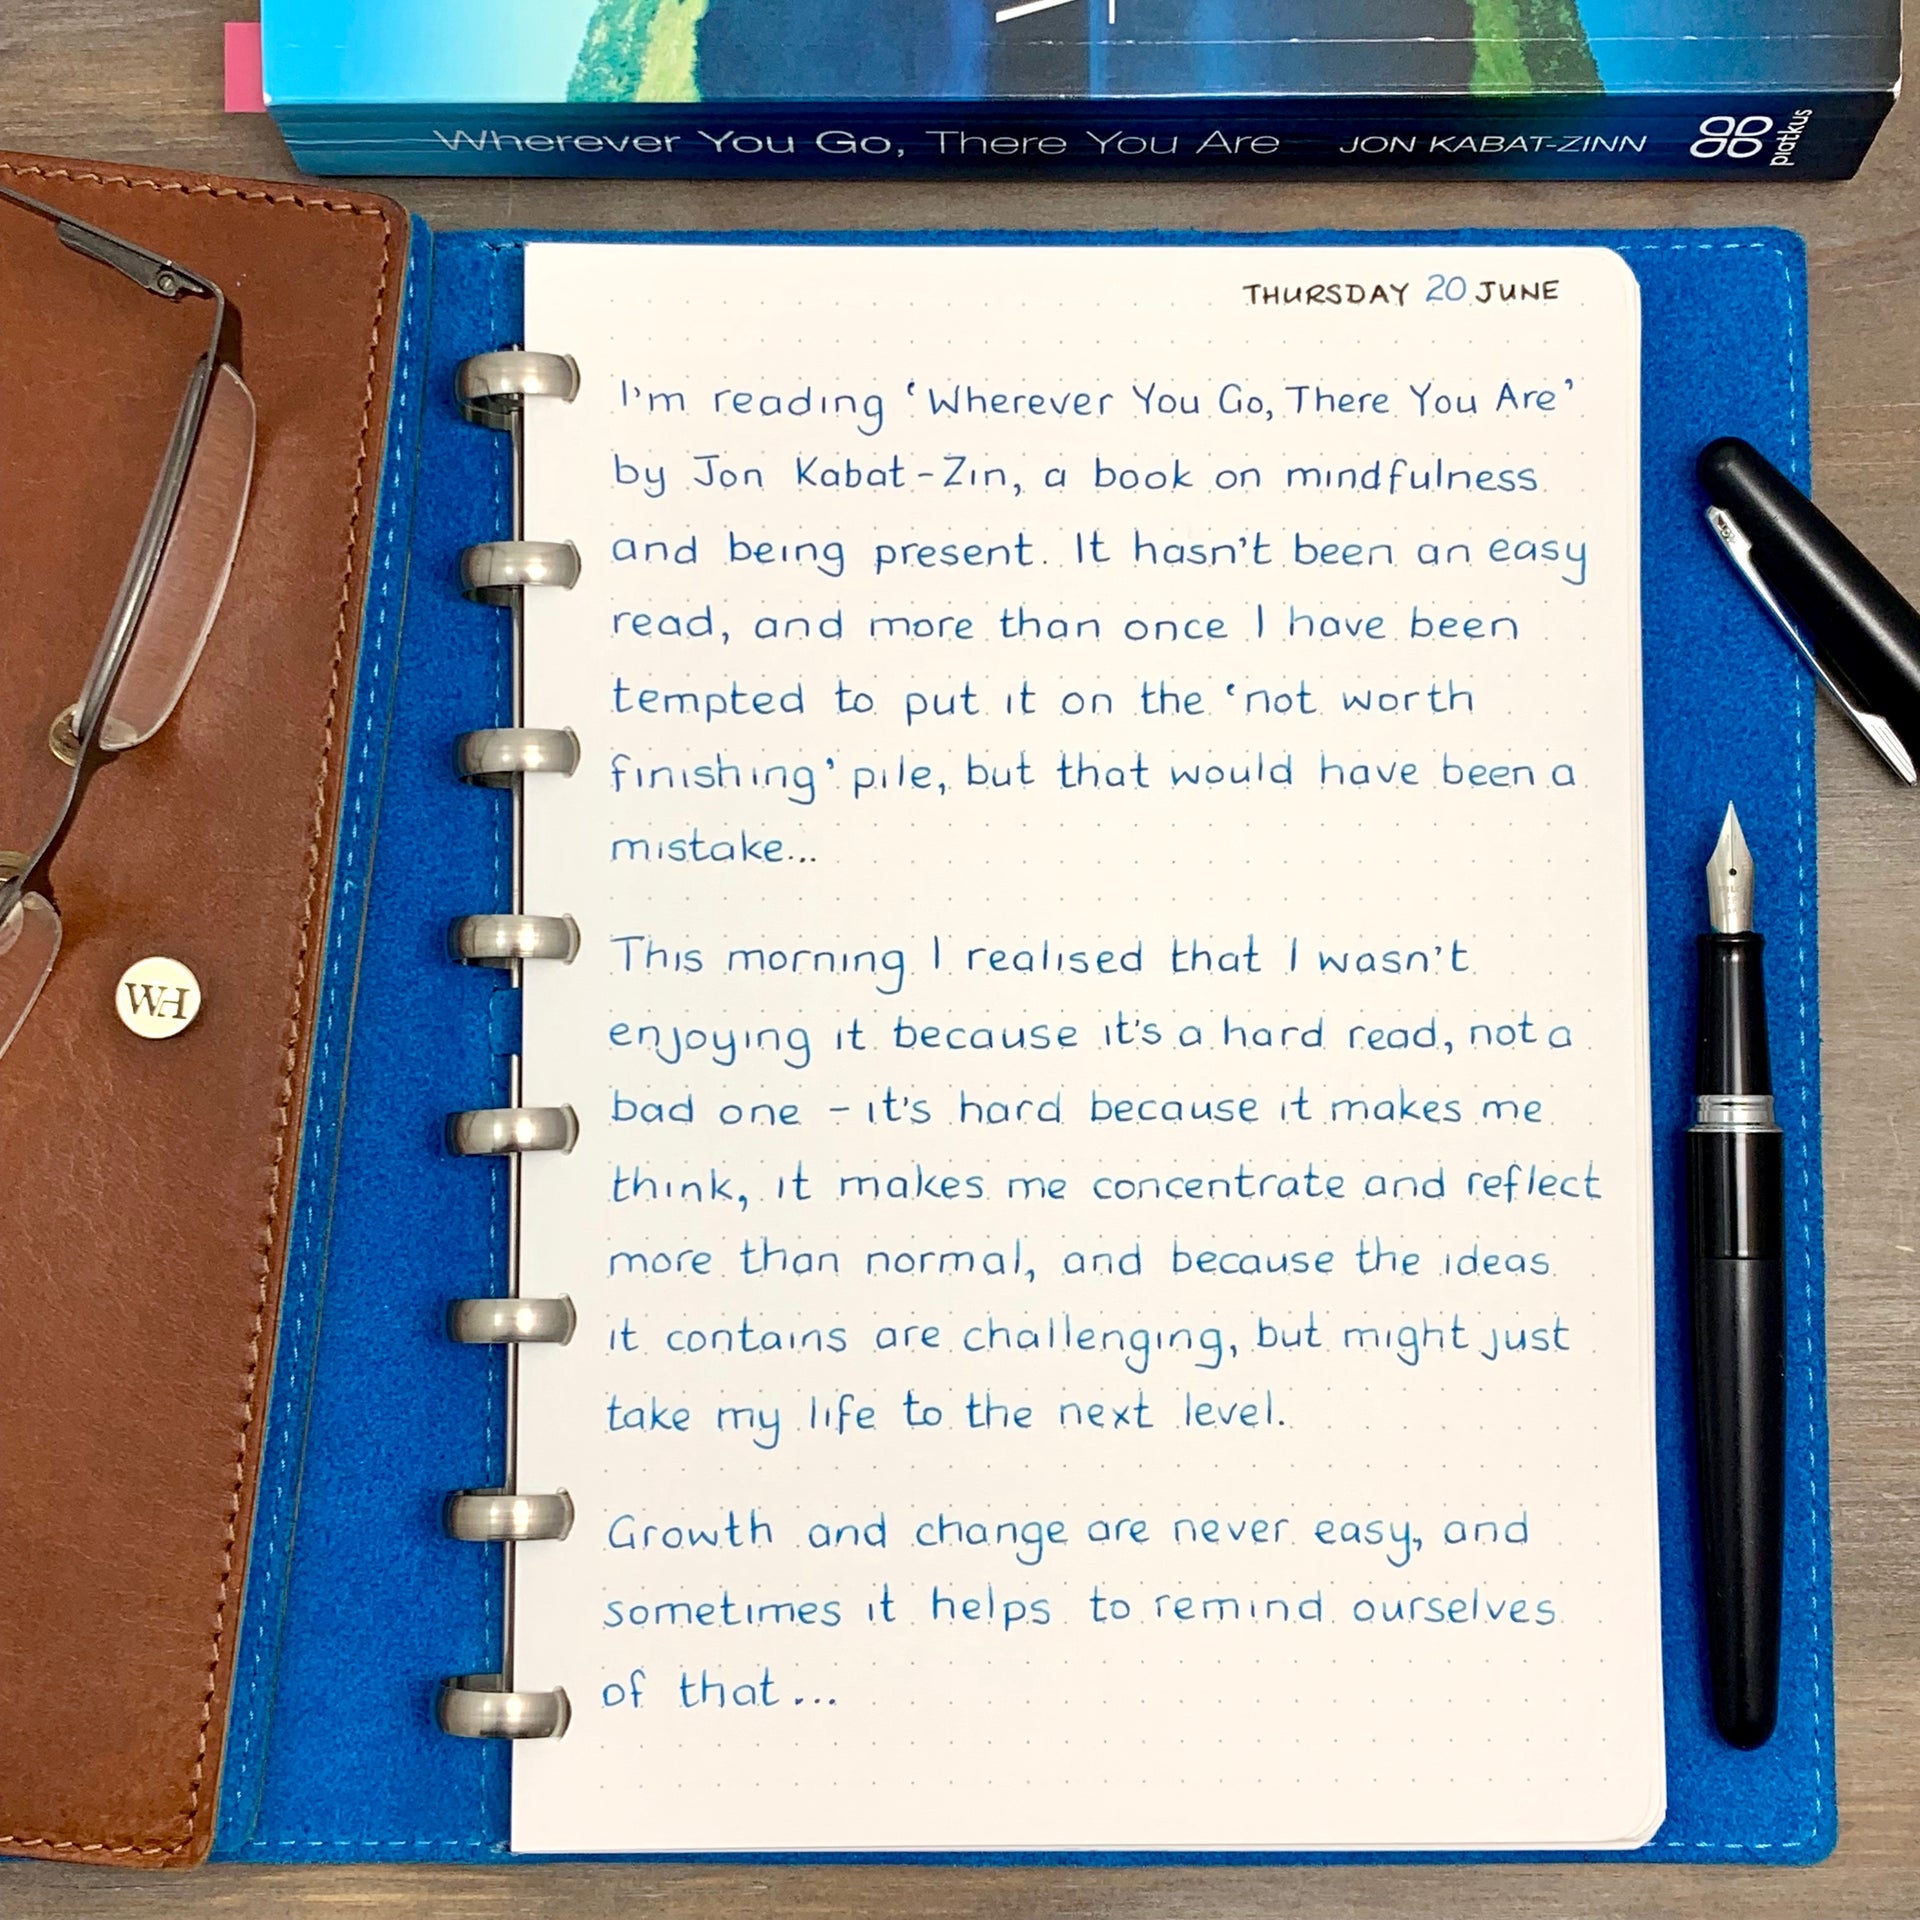 Wherever You Go, There You Are JON KABAT-ZINN piatkus
THURSDAY 20 JUNE
I'm reading ‘Wherever You Go, There You Are’
by Jon Kabat-Zin, a book on mindfulness
and being present. It hasn't been an easy
read, and more than once I have been
tempted to put it on the ‘not worth
finishing’ pile, but that would have been a
mistake...
This morning I realised that I wasn't
enjoying it because it's a hard read, not a
bad one - it's hard because it makes me
think, it makes me concentrate and reflect
more than normal, and because the ideas
it contains are challenging, but might just
take my life to the next level.
Growth and change are never easy, and
sometimes it helps to remind ourselves
of that...
WH